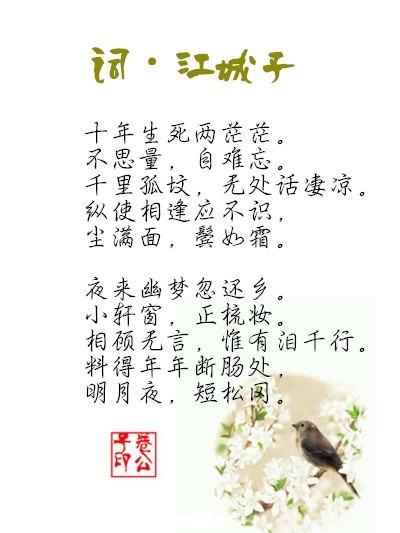 词·江城子
十年生死两茫茫。
不思量，自难忘。
千里孤坟，无处话凄凉。
纵使相逢应不识，
尘满面，鬓如霜。
夜来幽梦忽还乡。
小轩窗，正梳妆。
相顾无言，惟有泪千行。
料得年年断肠处，
明月夜，短松冈。